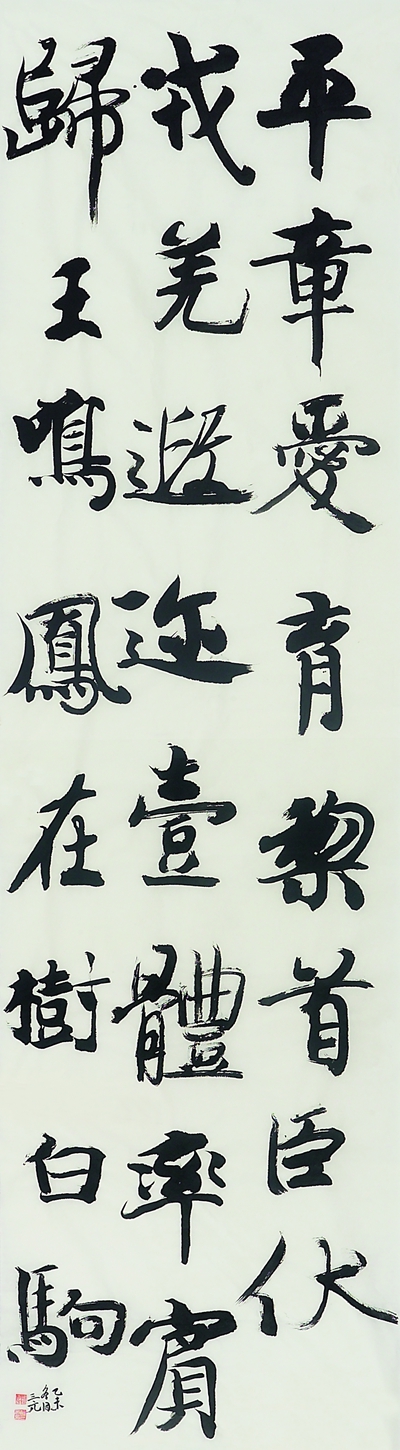 平章愛育黎首臣伏
戎羌遐迩壹體率賓
歸王鳴鳳在樹白駒
乙未